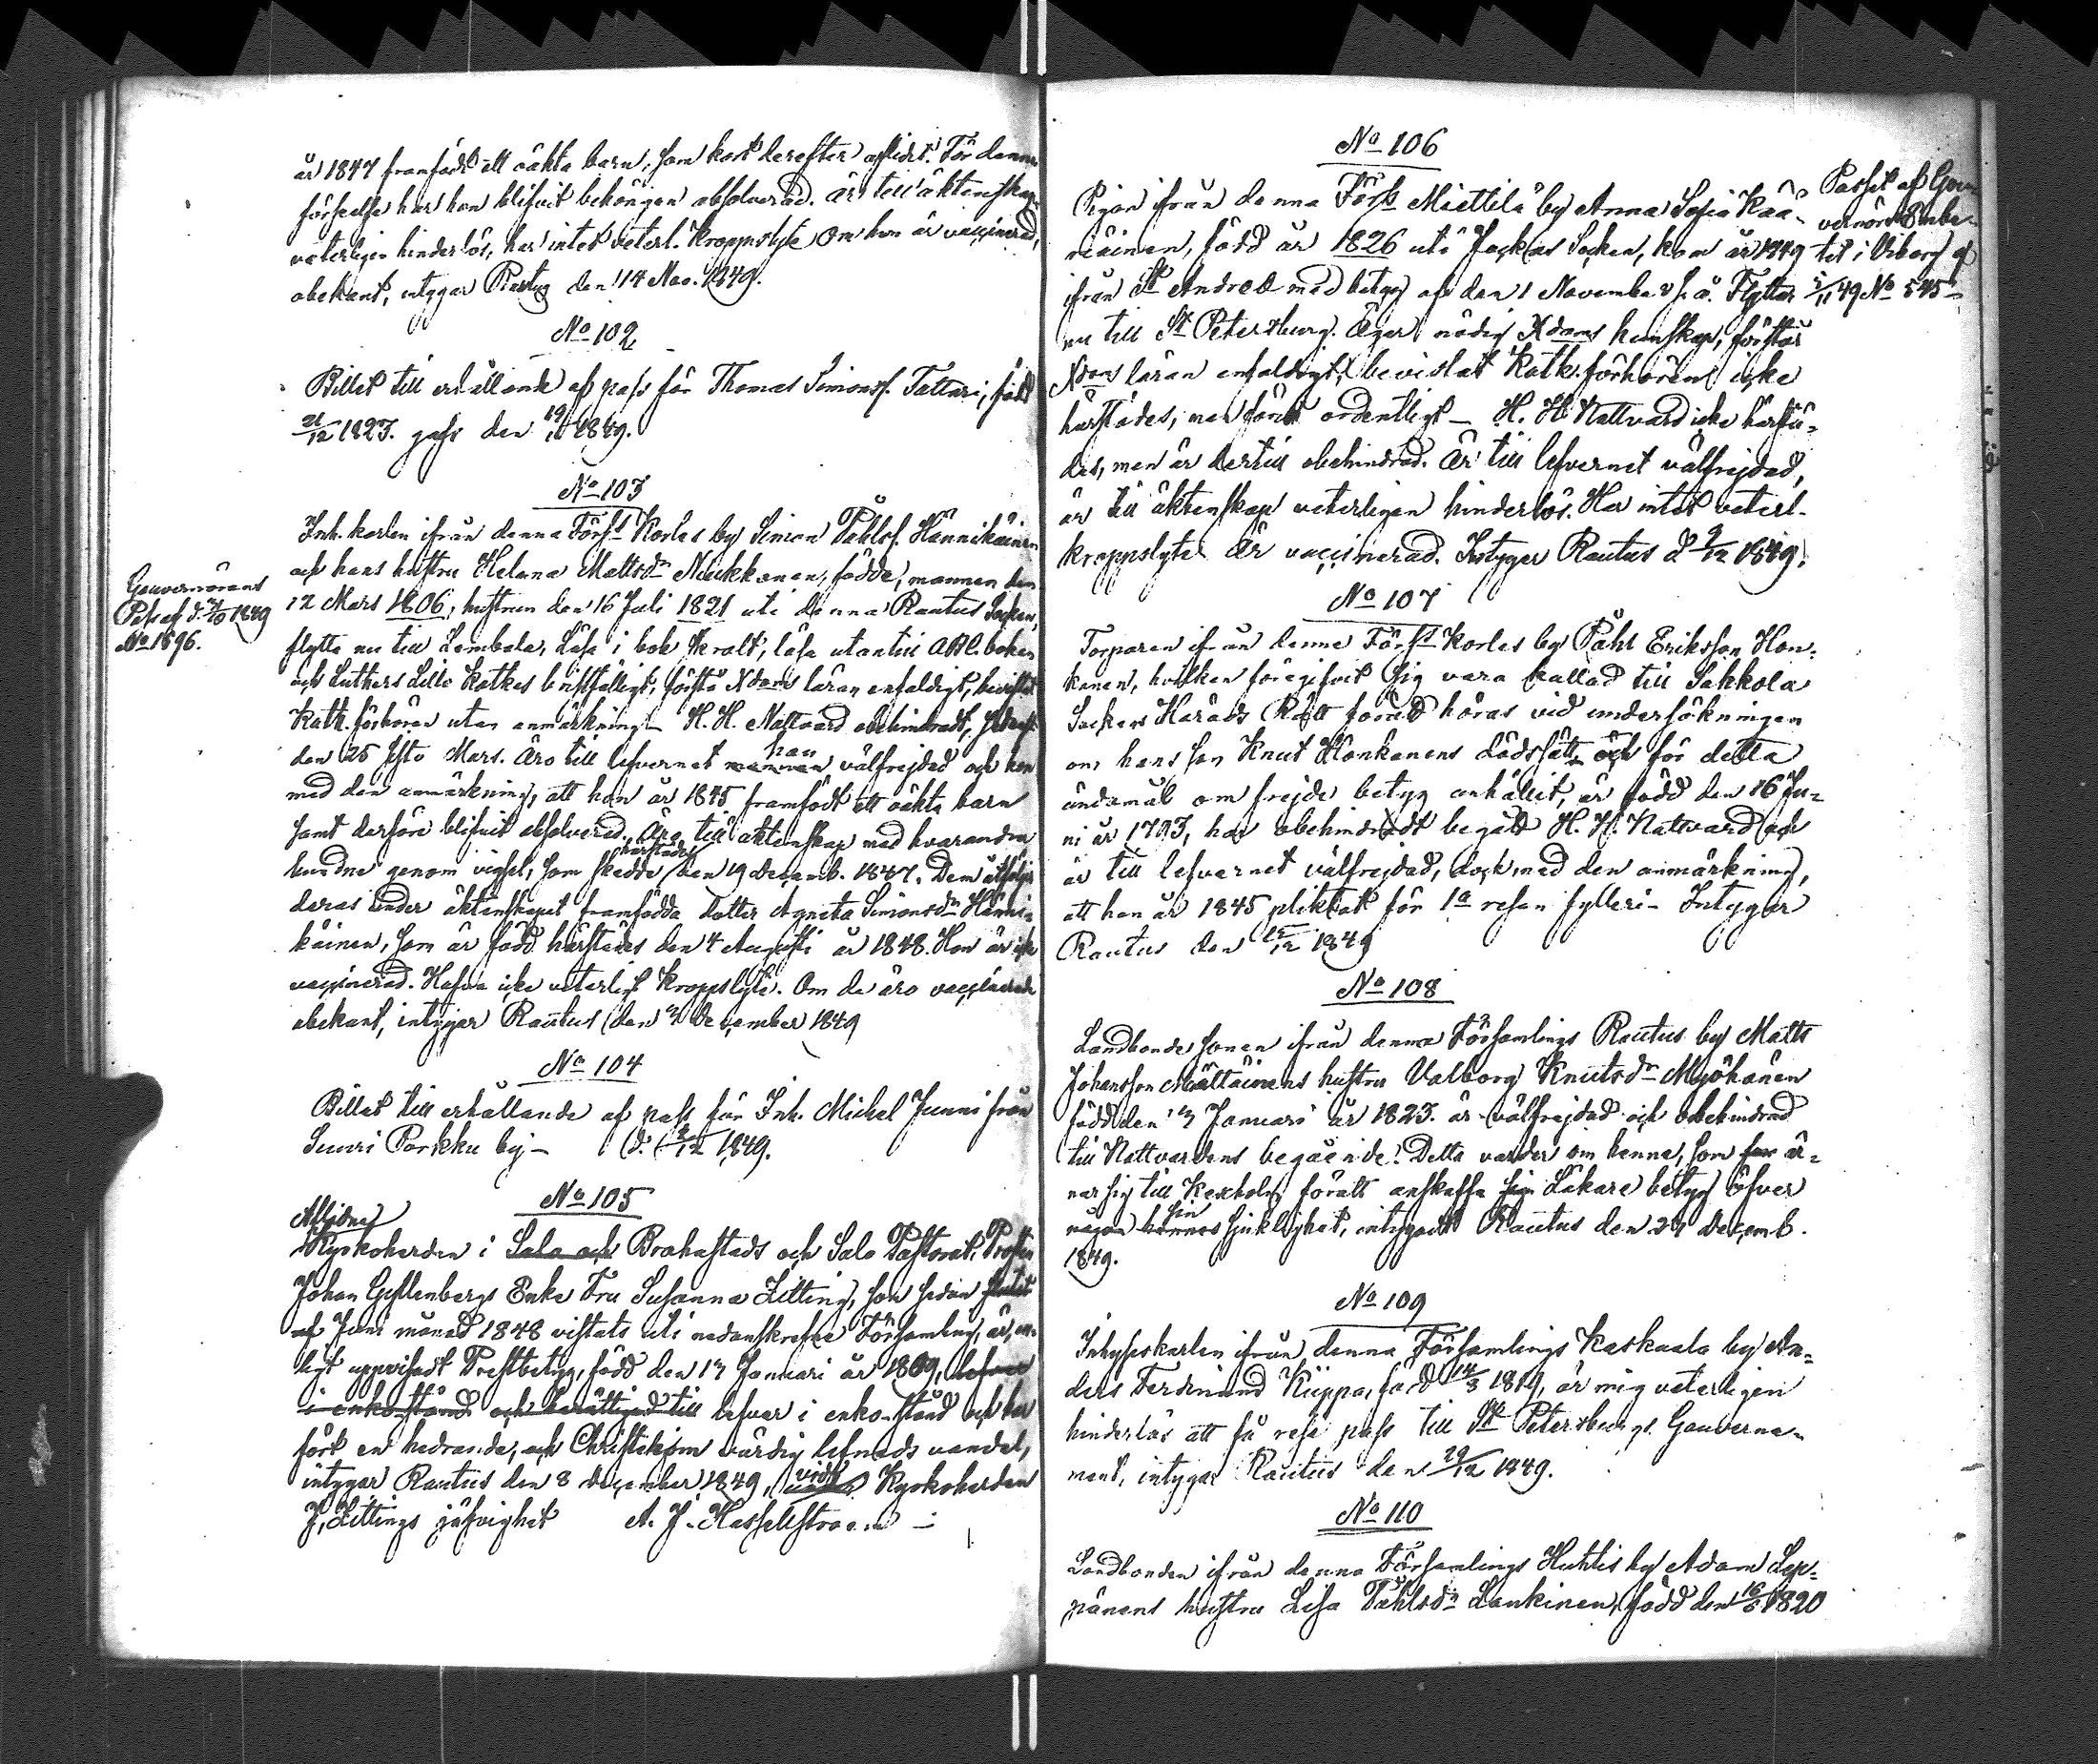 år 1847 framfödt ett oäkta barn, som kort derefter aflidit. För denna
förseelse har hon blifvit behörigen absolverad. Är till äktenskap
veterligen hinderlös, har intet veterl. kroppslyte Om hon är vaccinerad,
obekant, intygar Rautus den 14 Nov. 1849.
No 102
Billet till erhållande af pass för Thomas Simonss. Tattari, född
21/12 1823. gafs den 19/11 1849.
No 103
Inh. karlen ifrån denna Förs:s Korles by Simon Påhlss. Hännikäinen
och hans hustru Helena Mattsdr Niukkanen, födde, mannen den
12 Mars 1806, hustrun den 16 Juli 1821 uti denna Rautus Socken,
flytta nu till Lembala, Läsa i bok svralt, läsa utantill ABC boken
och Luthers Lilla Katkes bristfälligt, förstå Xdoms läran enfaldigt, bevistat
Katk. förhören utan anmärkning H. H. Nattvard obehindradt, sednast
den 25 sistl. Mars. Äro till lefvernet mannen han välfrejdad och hon
med den anmärkning, att hon år 1845 framfödt ett oäkta barn
samt derföre blifvit absolverad. Äro till äktenskap med hvarandra
bundne genom vigsel, som skedde härstädes den 19 Decemb. 1847. Dem åtföljer
deras under äktenskapet framfödda dotter Agneta Simonsdr Hänni-
käinen, som är född härstädes den 4 Augusti år 1848. Hon är icke
vaccinerad. Hafva icke veterligt kroppslyte. Om de äro vaccinerade
obekant, intygar Rautus den 3 December 1849
Gouvernörens
Pass af d. 1849
No 1896.
No 104
Billet till erhållande af pass för Inh. Michel Junni från
Suuri Porkku by - d. 3/12 1849.
No 105
Aflidne
Kyrkoherden i Salo och Brahestads och Salo Pastorat, Prosten
Johan Gyllenbergs Enka Fru Susanna Zitting, som sedan slutet
af Juni månad 1848 vistats uti nedanskrefne Församling, är, en-
ligt uppvisadt Prestbetyg, född den 17 Januari år 1809, lefver
i enkostånd och berättigad till lefver i enkostånd och har
fört en hedrande, och Christeligom värdig lefnads vandel,
intygar Rautus den 8 December 1849, vid Kyrkoherden
J. Zittings jäfvighet A. J. Hasselstroem
No 106
Pigan ifrån denna Förs:s Miettilä by Anna Sofia Kää-
riäinen, född år 1826 uti Jockas Socken, kom år 1849
ifrån St Andreæ med betyg af den 1 November s. å. Flyttar
nu till St Petersburg. Äger nödig Xdoms kunskap, förstår
Xdoms läran enfaldigt, bevistat Katk. förhören icke
härstädes, men förut ordentligt - H. H. Nattvard icke härstä-
des, men är dertill obehindrad. Är till lefvernet välfrejdad,
är till äktenskap veterligen hinderlös. Har intet veterl.
kroppslyte Är vaccinerad. Intygar Rautus d 9/12 1849.
Passet af Gou-
vernörs Embe-
tet i Viborg af
5/11 49 No 545
No 107
Torparen ifrån denna Förs:s Korles by Påhl Eriksson Hon-
kanen, hvilken föregifvit sig vara kallad till Sakkola
Sockens Härads Rätt för att höras vid undersökningen
om hans son Knut Honkanens dödssätt och för detta
ändamål om frejde betyg anhållit, är född den 16 Ju-
ni år 1793, har obehindradt begått H. H. Nattvard och
är till lefvernet välfrejdad, dock med den anmärkning,
att han år 1845 pliktat för 1a resan fylleri - Intygar
Rautus den 12/12 1849
No 108
Landbonde sonen ifrån denna Församlings Rautus by Matts
Johansson Määttäinens hustru Valborg Knutsdr Myöhänen
född den 3 Januari år 1823. är välfrejdad och obehindrad
till Nattvardens begående. Detta varder om henne, som är-
nar sig till Kexholm för att anskaffa sig Läkare betyg öfver
någon hennes sin sjuklighet, intygadt Rautus den 27 Decemb.
1849.
No 109
Inhyseskarlen ifrån denna Församlings Kaskaala by An-
ders Ferdinand Kiippa, född 14/3 1819, är mig veterligen
hinderlös att få resa pass till St Petersburgs Gouverne-
ment, intygar Rautus den 29/12 1849.
No 110
Landbonden ifrån denna Församlings Huhtis by Adam Lep-
pänens hustru Lisa Påhlsdr Lankinen, född den 1820